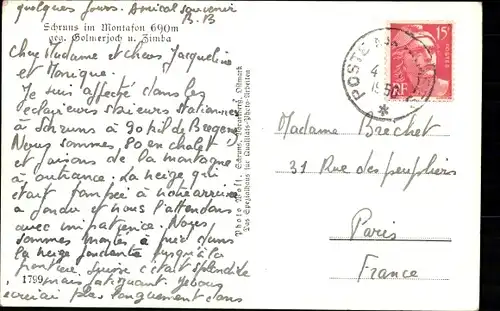 quelques jours. Amical souvenir
B.B
Schruns im Montafon 690m
geg. Golmerjoch u. Zimba
Cher Madame et chères Jacqueline
et Monique.
Je suis affecté dans les
éclaireurs skieurs stationnés
à Schruns à 90 kil de Bregenz
Nous sommes 80 en chalet
et faisons de la montagne
à outrance. La neige qui
était tombée à notre arrivée
a fondu et nous l'attendons
avec impatience. Nous
sommes montés à pied dans
la neige fondante jusqu'à la
frontière Suisse c'était splendide
1799 mais fatiguant. Je vous
écrirai plus longuement dans
Photo Wolf, Schruns, Vorarlberg, Ostmark
Das Spezialhaus für Qualitäts-Photo-Arbeiten
POSTE
4
195
15F
RF
Madame Brechet
31 Rue des peupliers
Paris
France